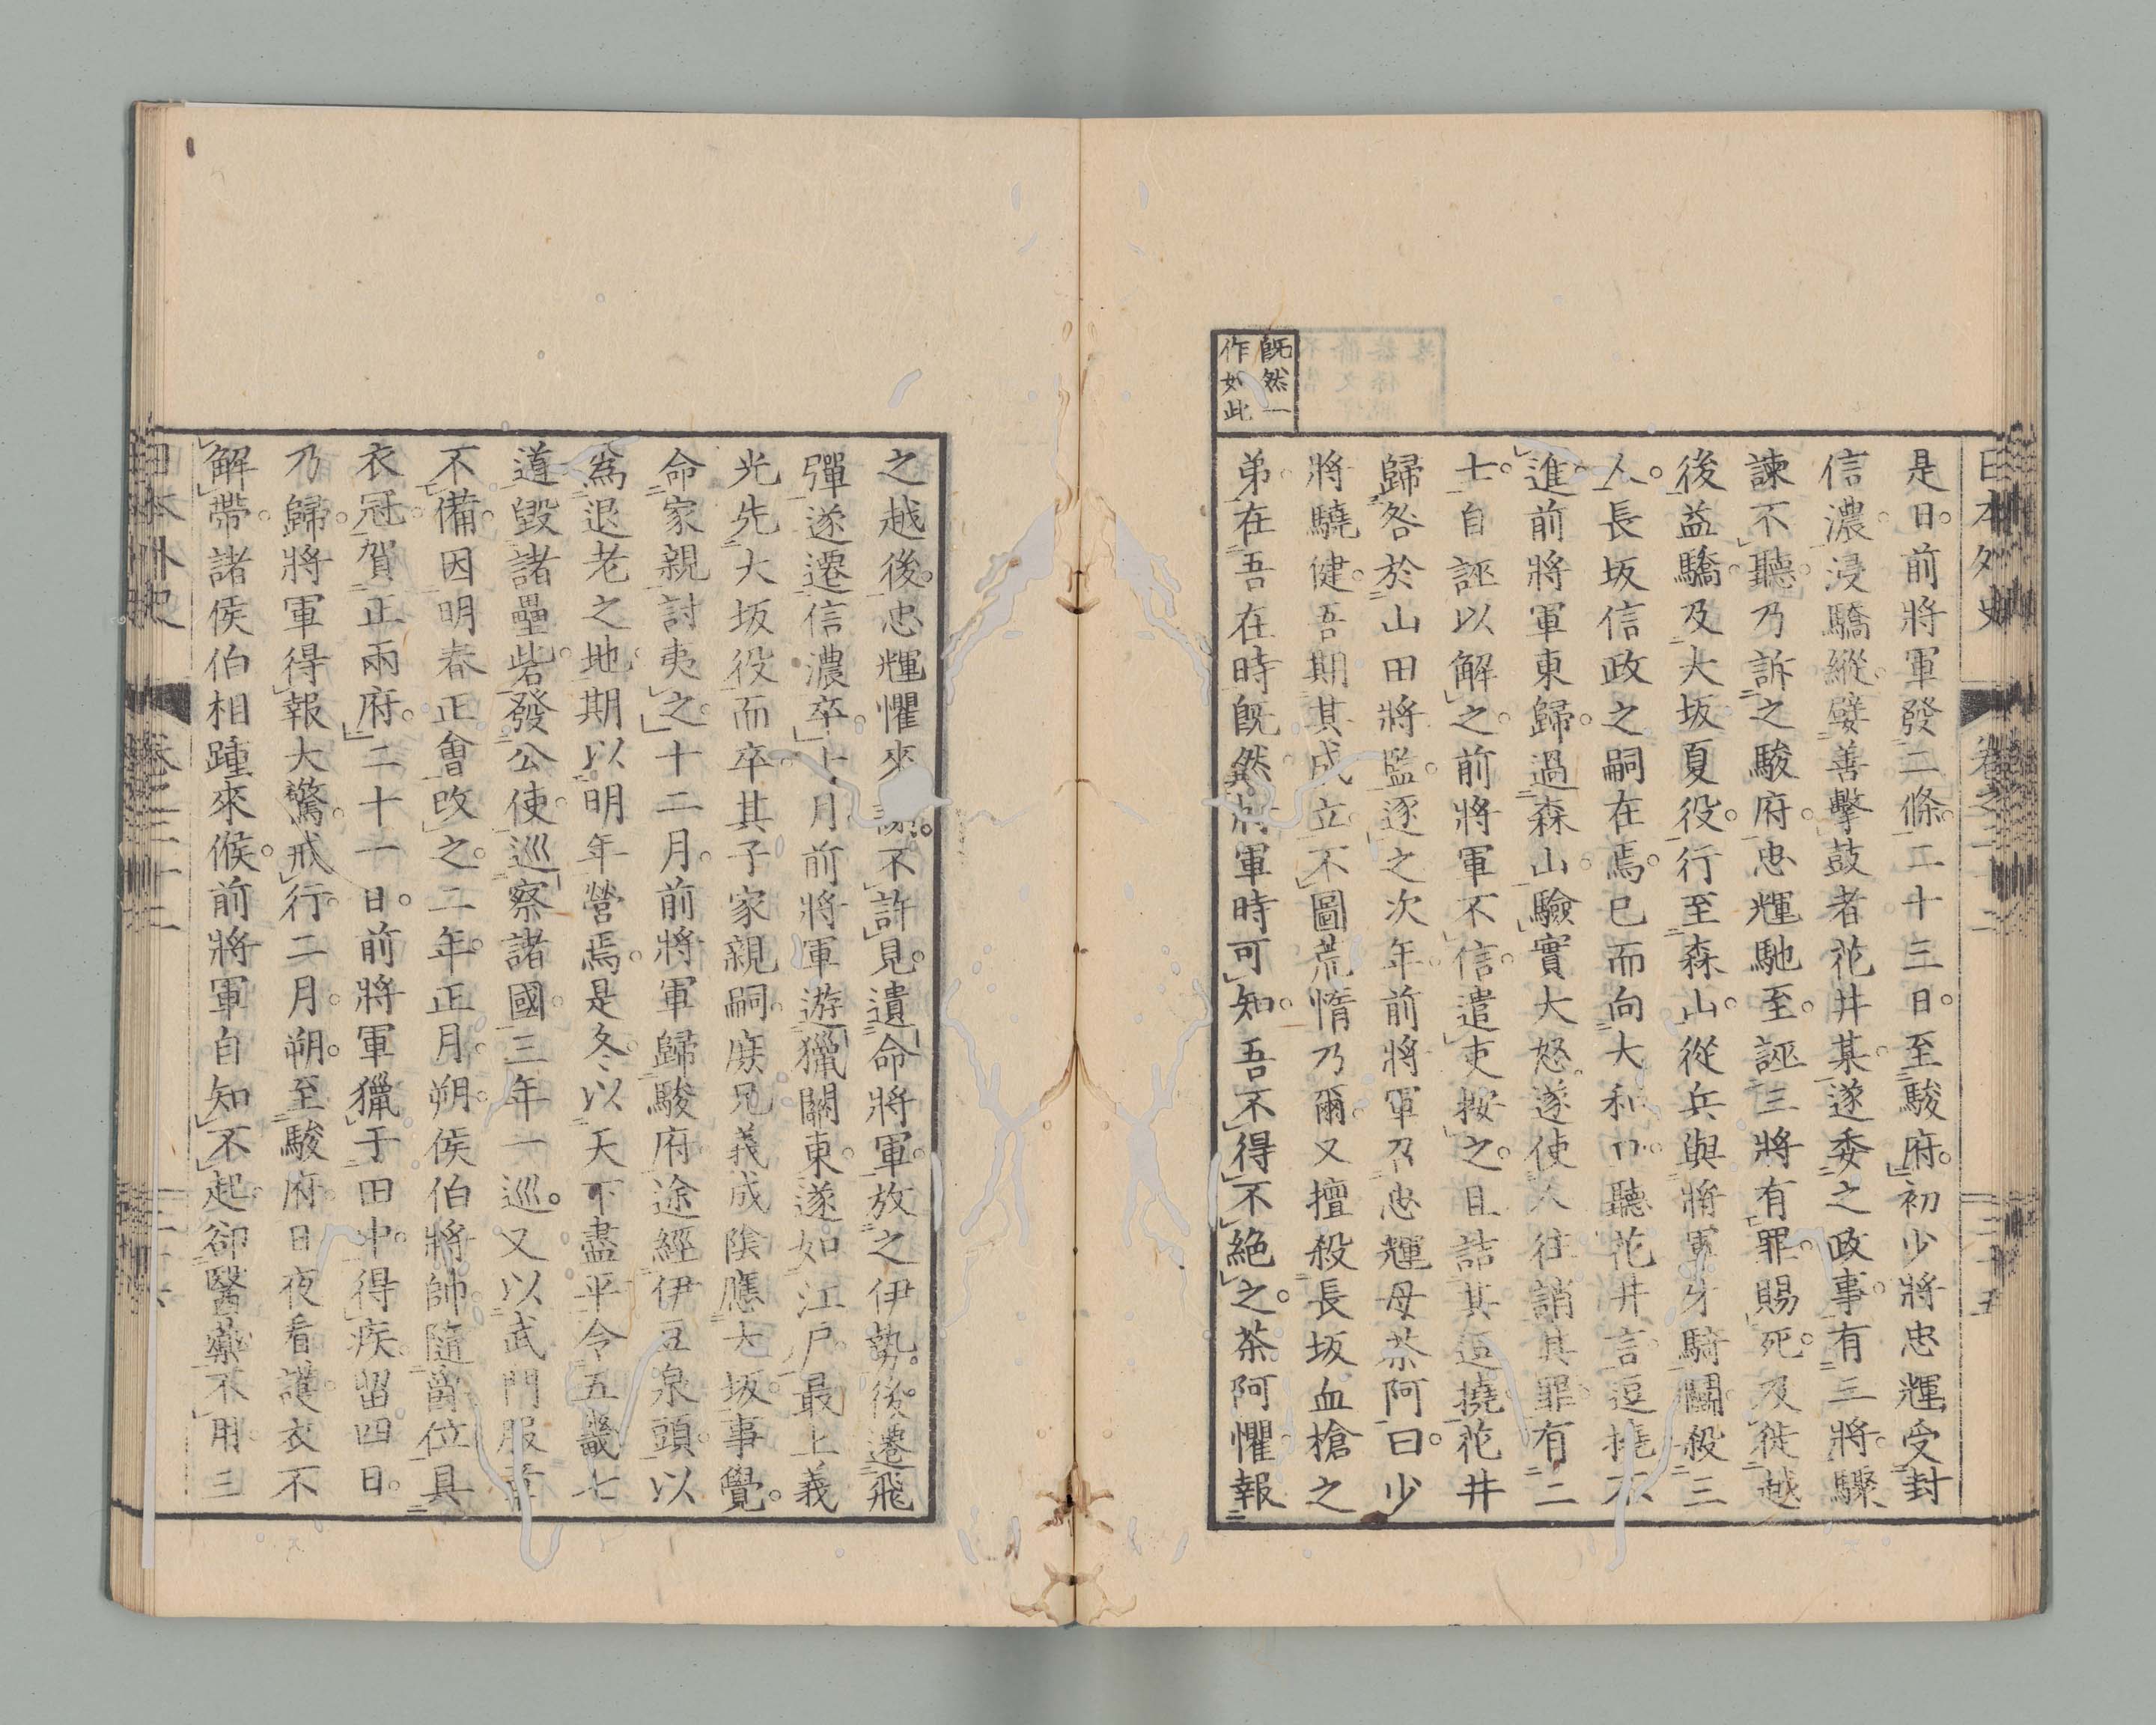 日本外史 卷之二十二 二十五
既然一
作如此
是日。前將軍發二條。二十三日。至駿府。初少將忠輝受封
信濃。浸驕縱。嬖善擊鼓者花井某。遂委之政事。有三將驟
諫不聽。乃訴之駿府。忠輝馳至。誣三將有罪。賜死。及徙越
後益驕。及大坂夏役。行至森山。從兵與將軍牙騎鬪。殺三
人。長坂信政之嗣在焉。已而向大和口。聽花井言。逗撓不
進。前將軍東歸。過森山。驗實大怒。遂使人往誚其罪有二
士。自誣以解之。前將軍不信。遣吏按之。且詰其逗撓。花井
歸咎於山田將監。逐之。次年。前將軍召忠輝母茶阿曰。少
將驍健。吾期其成立。不圖荒惰乃爾。又擅殺長坂血槍之
弟。在吾在時既然。將軍時可知。吾不得不絕之。茶阿懼報
之越後。忠輝懼來 不許見。遺命將軍。放之伊勢。後遷飛
彈。遂遷信濃卒。十月前將軍遊獵關東。遂如江戶。最上義
光先大坂役而卒。其子家親嗣。庶兄義成陰應大坂。事覺。
命家親討夷之。十二月。前將軍歸駿府。途經伊豆泉頭。以
爲退老之地。期以明年營焉。是冬。以天下盡平。令五畿七
道毀諸壘砦。發公使。巡察諸國。三年一巡。又以武門服章
不備。因明春正會改之。二年。正月。朔。侯伯將帥隨爵位具
衣冠。賀正兩府。二十一日。前將軍獵于田中。得疾。留四日。
乃歸。將軍得報大驚。戒行。二月。朔。至駿府。日夜看護。衣不
解帶。諸侯伯相踵來候。前將軍自知不起。卻醫藥不用。三
日本外史 卷之二十二